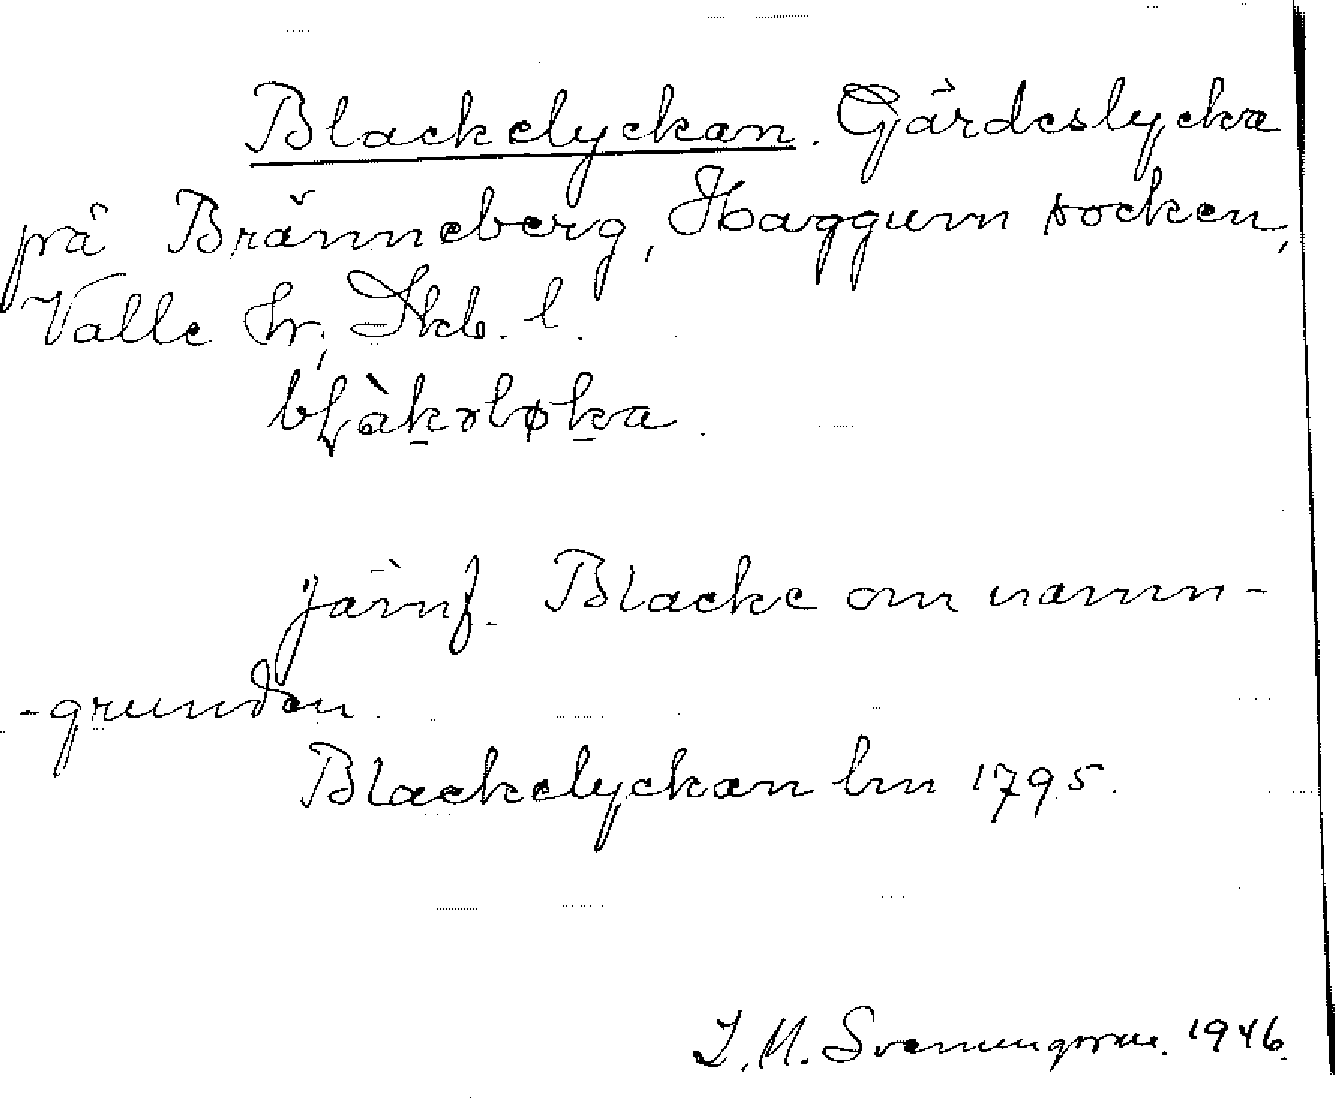 Blackelyckan. Gärdeslycka
på Bränneberg, Haggum socken,
Valle hr, Skb. l.
Jämf. Blacke om namn-
-grunden.
Blackelyckan lm 1795.
I. M. Svenungsson. 1946.